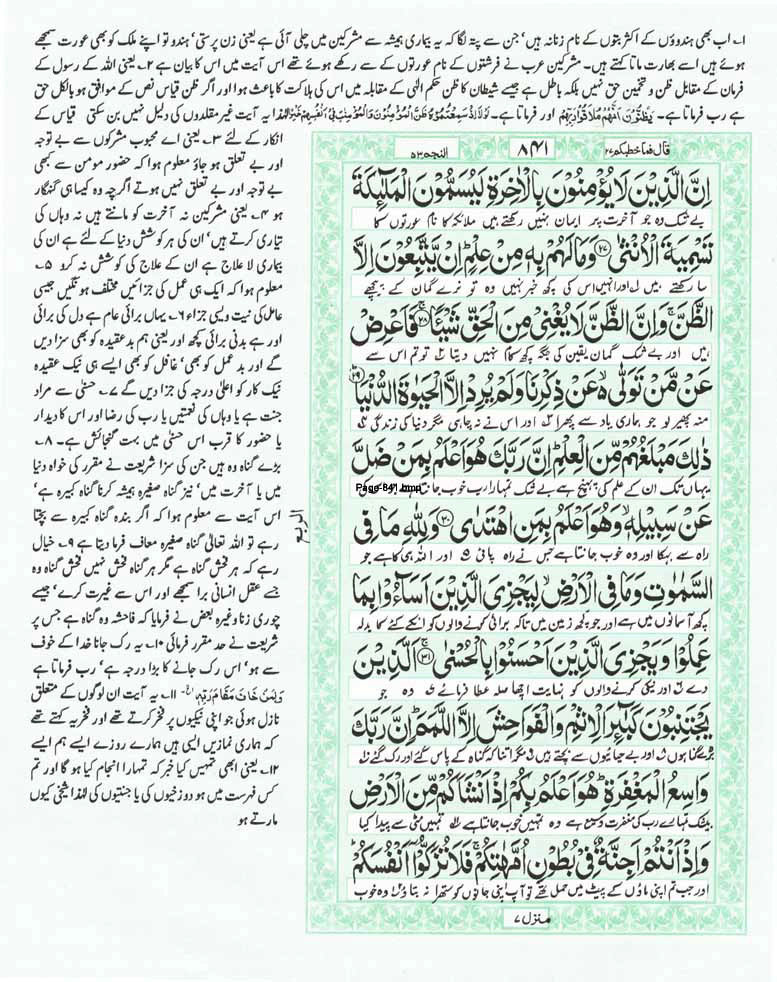 ۱۔ اب بھی ہندوؤں کے اکثر بتوں کے نام زنانہ ہیں، جن سے پتہ لگا کہ یہ بیماری ہمیشہ سے مشرکین میں چلی آئی ہے یعنی زن پرستی، ہندو تو اپنے ملک کو بھی عورت سمجھے
ہوئے ہیں اسے بھارت ماتا کہتے ہیں۔ مشرکین عرب نے فرشتوں کے نام عورتوں کے سے رکھے ہوئے تھے اس آیت میں اس کا بیان ہے ۲۔ یعنی اللہ کے رسول کے
فرمان کے مقابل ظن و تخمین حق نہیں بلکہ باطل ہے جیسے شیطان کا ظن حکم الٰہی کے مقابلہ میں اس کی ہلاکت کا باعث ہوا اور اگر ظن قیاس نص کے موافق ہو بالکل حق
ہے رب فرماتا ہے۔ اور فرماتا ہے۔ لہٰذا یہ آیت غیر مقلدوں کی دلیل نہیں بن سکتی قیاس کے
انکار کے لئے ۳۔ یعنی اے محبوب مشرکوں سے بے توجہ
اور بے تعلق ہو جاؤ معلوم ہوا کہ حضور مومن سے بھی
بے توجہ اور بے تعلق نہیں ہوتے اگرچہ وہ کیسا ہی گنہگار
ہو ۴۔ یعنی مشرکین نہ آخرت کو مانتے ہیں نہ وہاں کی
تیاری کرتے ہیں، ان کی ہر کوشش دنیا کے لئے ہے ان کی
بیماری لا علاج ہے ان کے علاج کی کوشش نہ کرو ۵۔
معلوم ہوا کہ ایک ہی عمل کی جزائیں مختلف ہونگیں جیسی
عامل کی نیت ویسی جزاء ۶۔ یہاں برائی عام ہے دل کی برائی
اور ہے بدنی برائی کچھ اور یعنی ہم بد عقیدہ کو بھی سزا دیں
گے اور بد عمل کو بھی، غافل کو بھی ایسے ہی نیک عقیدہ
نیک کار کو اعلیٰ درجہ کی جزا دیں گے ۷۔ حسنٰی سے مراد
جنت ہے یا وہاں کی نعمتیں یا رب کی رضا اور اس کا دیدار
یا حضور کا قرب اس حسنٰی میں بہت گنجائش ہے۔ ۸۔
بڑے گناہ وہ ہیں جن کی سزا شریعت نے مقرر کی خواہ دنیا
میں یا آخرت میں، نیز گناہ صغیرہ ہمیشہ کرنا گناہ کبیرہ ہے،
اس آیت سے معلوم ہوا کہ اگر بندہ گناہ کبیرہ سے بچتا
رہے تو اللہ تعالیٰ گناہ صغیرہ معاف فرما دیتا ہے ۹۔ خیال
رہے کہ ہر فحش گناہ ہے مگر ہر گناہ فحش نہیں فحش گناہ وہ
جسے عقل انسانی برا سمجھے اور اس سے غیرت کرے، جیسے
چوری زنا وغیرہ بعض نے فرمایا کہ فاحشہ وہ گناہ ہے جس پر
شریعت نے حد مقرر فرمائی ۱۰۔ یہ رک جانا خدا کے خوف
سے ہو، اس رک جانے کا بڑا درجہ ہے، رب فرماتا ہے
وَلِمَنْ خَافَ مَقَامَ رَبِّہٖ ۱۱۔ یہ آیت ان لوگوں کے متعلق
نازل ہوئی جو اپنی نیکیوں پر فخر کرتے تھے اور فخریہ کہتے تھے
کہ ہماری نمازیں ایسی ہیں ہمارے روزے ایسے ہم ایسے
۱۲۔ یعنی ابھی تمہیں کیا خبر کہ تمہارا انجام کیا ہو گا اور تم
کس فہرست میں ہو دوزخیوں کی یا جنتیوں کی لہٰذا شیخی کیوں
مارتے ہو
قال فما خطبکم ۲۷ ۸۴۱ النجم ۵۳
اِنَّ الَّذِیْنَ لَا یُؤْمِنُوْنَ بِالْاٰخِرَةِ لَیُسَمُّوْنَ الْمَلٰٓئِکَةَ
بے شک وہ جو آخرت پر ایمان نہیں رکھتے ہیں ملائکہ کا نام عورتوں کا
تَسْمِیَةَ الْاُنْثٰی ۝۲۷ وَمَا لَهُمْ بِهٖ مِنْ عِلْمٍ ؕ اِنْ یَّتَّبِعُوْنَ اِلَّا
سا رکھتے ہیں ۱ اور انہیں اس کی کچھ خبر نہیں وہ تو نرے گمان کے پیچھے
الظَّنَّ ۚ وَاِنَّ الظَّنَّ لَا یُغْنِیْ مِنَ الْحَقِّ شَیْـًٔا ۝۲۸ فَاَعْرِضْ
ہیں اور بے شک گمان یقین کی جگہ کچھ کام نہیں دیتا ۲ تو تم اس سے
عَنْ مَّنْ تَوَلّٰی ۙ۬ عَنْ ذِکْرِنَا وَلَمْ یُرِدْ اِلَّا الْحَیٰوةَ الدُّنْیَا ۝۲۹
منہ پھیر لو جو ہماری یاد سے پھرا ۳ اور اس نے نہ چاہی مگر دنیا کی زندگی ۴
ذٰلِکَ مَبْلَغُهُمْ مِّنَ الْعِلْمِ ؕ اِنَّ رَبَّکَ هُوَ اَعْلَمُ بِمَنْ ضَلَّ
یہاں تک ان کے علم کی پہنچ ہے بے شک تمہارا رب خوب جانتا ہے
Page-841.bmp
عَنْ سَبِیْلِهٖ وَهُوَ اَعْلَمُ بِمَنِ اهْتَدٰی ۝۳۰ وَلِلّٰهِ مَا فِی
راہ سے بہکا اور وہ خوب جانتا ہے جس نے راہ پائی ۵ اور اللہ ہی کا ہے جو
السَّمٰوٰتِ وَمَا فِی الْاَرْضِ ۙ لِیَجْزِیَ الَّذِیْنَ اَسَآءُوْا بِمَا
کچھ آسمانوں میں ہے اور جو کچھ زمین میں تاکہ برائی کرنے والوں کو انکے کئے کا بدلہ
عَمِلُوْا وَیَجْزِیَ الَّذِیْنَ اَحْسَنُوْا بِالْحُسْنٰی ۝۳۱ اَلَّذِیْنَ
دے ۶ اور نیکی کرنے والوں کو نہایت اچھا صلہ عطا فرمائے ۷ وہ جو
یَجْتَنِبُوْنَ کَبٰٓئِرَ الْاِثْمِ وَالْفَوَاحِشَ اِلَّا اللَّمَمَ ؕ اِنَّ رَبَّکَ
بڑے گناہوں ۸ اور بے حیائیوں سے بچتے ہیں ۹ مگر اتنا کہ گناہ کے پاس گئے اور رک گئے ۱۰
وَاسِعُ الْمَغْفِرَةِ ؕ هُوَ اَعْلَمُ بِکُمْ اِذْ اَنْشَاَکُمْ مِّنَ الْاَرْضِ
بیشک تمہارے رب کی مغفرت وسیع ہے وہ تمہیں خوب جانتا ہے ۱۱ تمہیں مٹی سے پیدا کیا
وَاِذْ اَنْتُمْ اَجِنَّةٌ فِیْ بُطُوْنِ اُمَّهٰتِکُمْ ۚ فَلَا تُزَکُّوْۤا اَنْفُسَکُمْ ؕ
اور جب تم اپنی ماؤں کے پیٹ میں حمل تھے تو آپ اپنی جانوں کو ستھرا نہ بتاؤ ۱۲ وہ خوب
منزل ۷
الربع